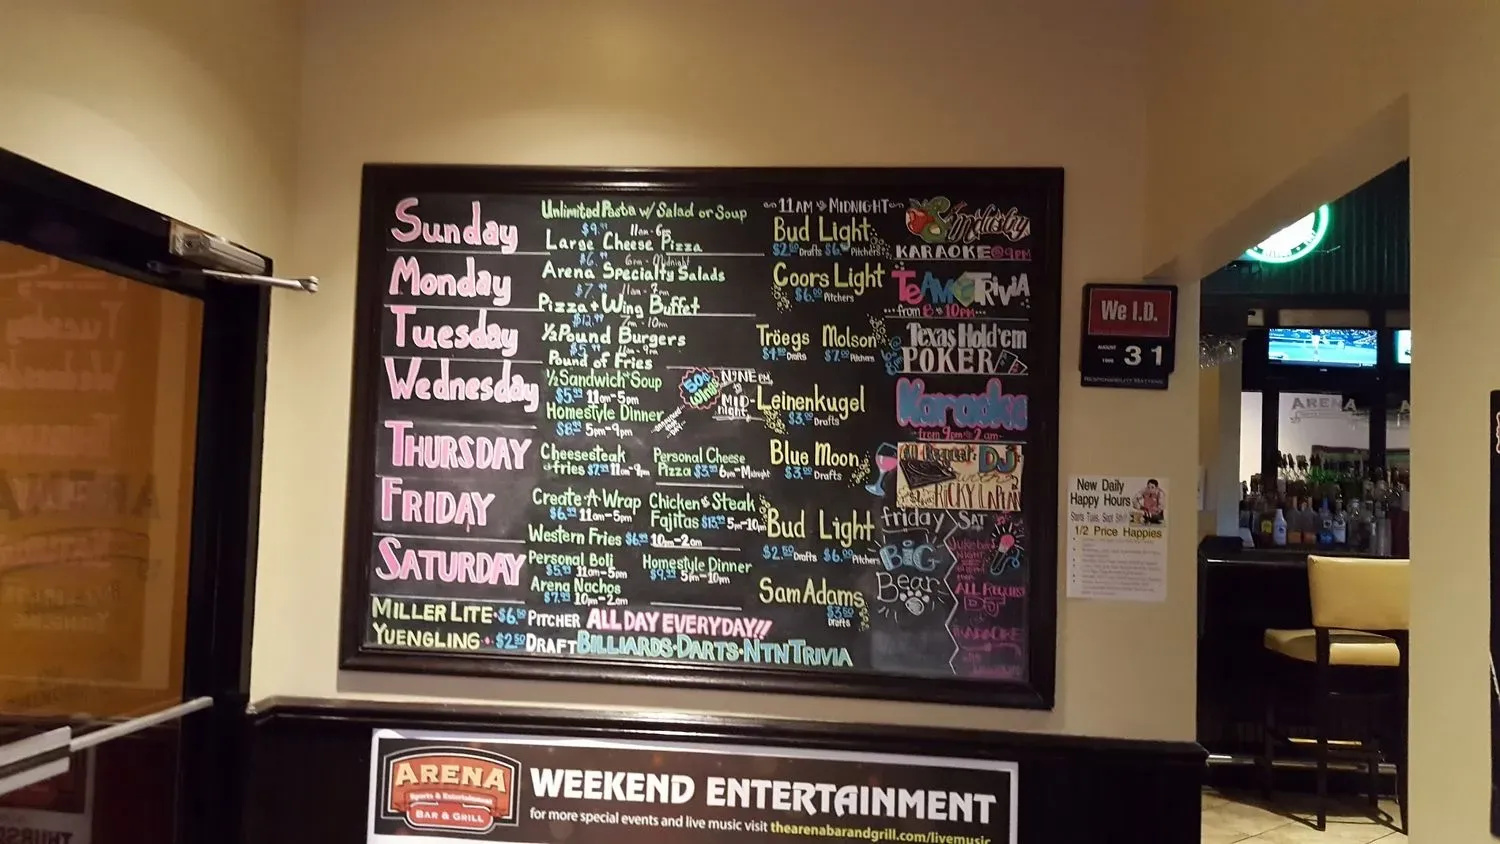 Sunday
Unlimited Pasta w/ Salad or Soup
$9.99 11am-6pm
Large Cheese Pizza
$6.99 6pm-Midnight
11AM to MIDNIGHT
Bud Light
$2.50 Drafts $6.00 Pitchers
& Industry
KARAOKE @ 9PM
Monday
Arena Specialty Salads
$7.99
Pizza + Wing Buffet
$12.99 - 10pm
Coors Light
$6.00 Pitchers
TEAM TRIVIA
from 8 - 10PM
Tuesday
1/2 Pound Burgers
Pound of Fries
Tröegs Molson
Drafts $7.00 Pitchers
Texas Hold'em
POKER
Wednesday
1/2 Sandwich Soup
$5.99 11am-5pm
Homestyle Dinner
$8.99 5pm-9pm
50¢ WINGS
NINE PM
to
MID-
night
Leinenkugel
$3.00 Drafts
Karaoke
from 9pm to 2am
THURSDAY
Cheesesteak
& fries $7.99 11am-9pm
Personal Cheese
Pizza $3.99 6pm-Midnight
Blue Moon
$3.00 Drafts
All Request DJ
with
RICKY LAPLAN
FRIDAY
Create-A-Wrap
$6.99 11am-5pm
Chicken & Steak
Fajitas $13.99 5pm-10pm
Western Fries $6.99 10pm-2am
Bud Light
$2.50 Drafts $6.00 Pitchers
friday
BIG
Bear
SAT
Jukebox
NIGHT
ALL REQUEST
DJ
KARAOKE
SATURDAY
Personal Boli
$5.99 11am-5pm
Arena Nachos
$7.99 10pm-2am
Homestyle Dinner
$9.99 5pm-10pm
Sam Adams
$3.50
Drafts
MILLER LITE - $6.00 PITCHER ALL DAY EVERYDAY!!
YUENGLING - $2.50 DRAFT BILLIARDS · DARTS · NTN TRIVIA
We I.D.
AUGUST
31
1995
RESPONSIBILITY MATTERS
New Daily
Happy Hours
Starts Tues. Sept 5th!!
1/2 Price Happies
ARENA
ARENA
Sports & Entertainment
BAR & GRILL
WEEKEND ENTERTAINMENT
for more special events and live music visit thearenabarandgrill.com/livemusic